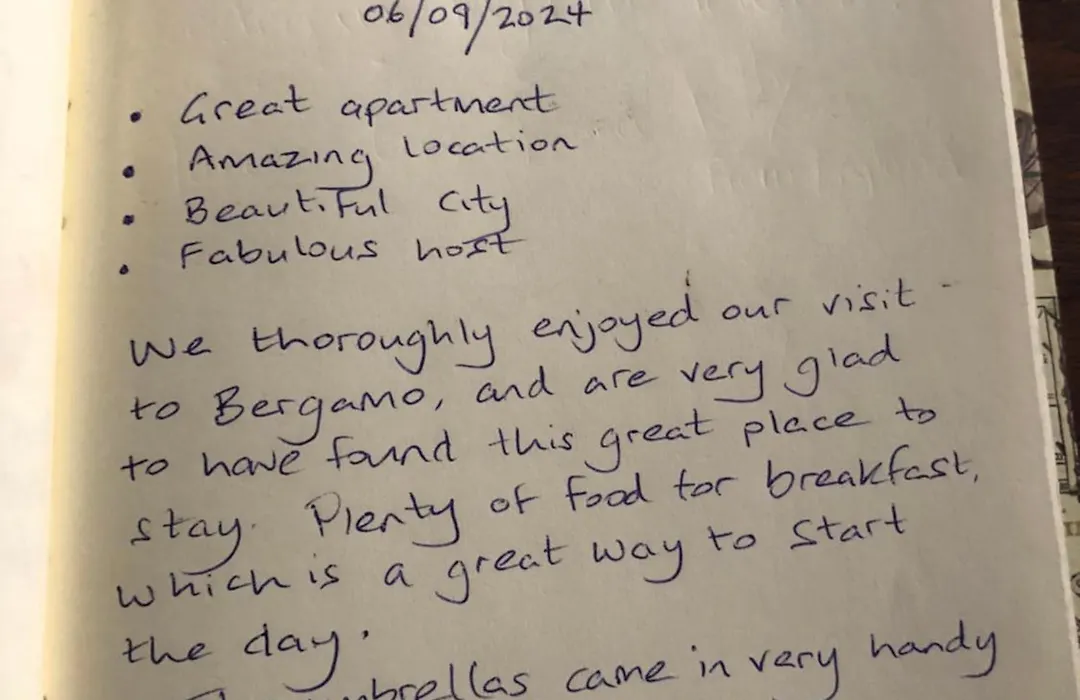 06/09/2024
• Great apartment
• Amazing location
• Beautiful city
• Fabulous host
We thoroughly enjoyed our visit
to Bergamo, and are very glad
to have found this great place to
stay. Plenty of food for breakfast,
which is a great way to start
the day.
came in very handy